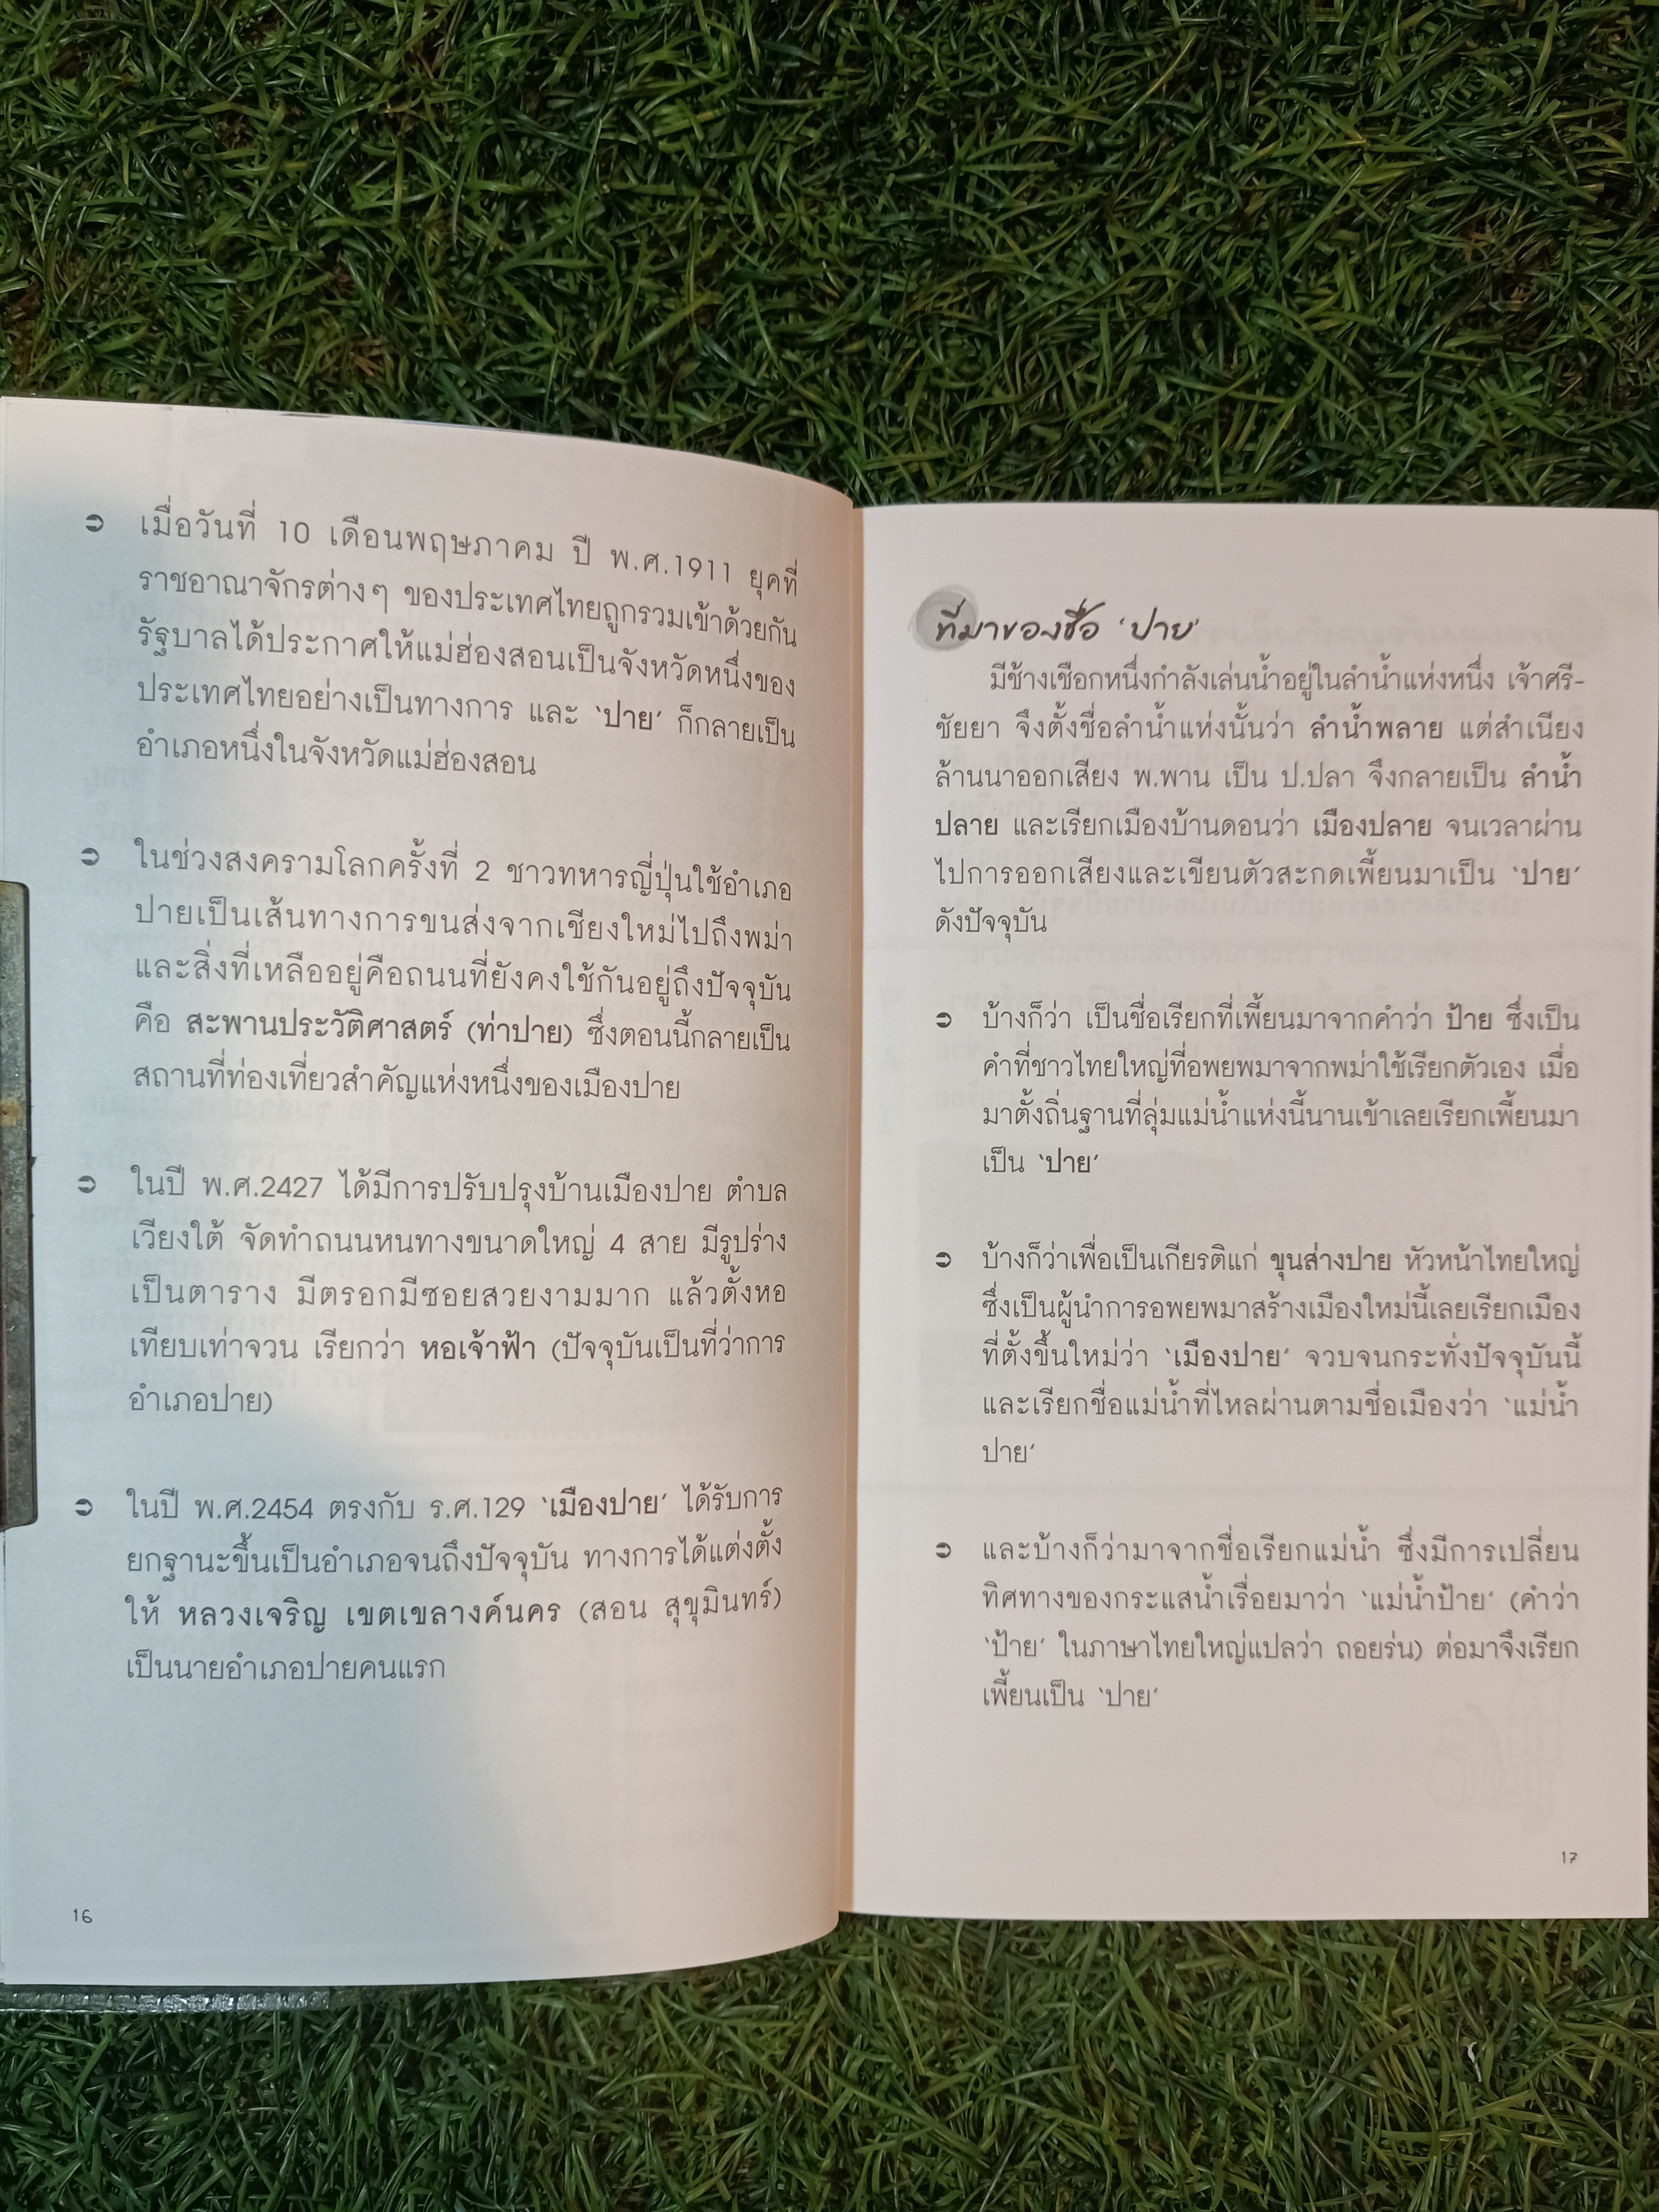 ➲ เมื่อวันที่ 10 เดือนพฤษภาคม ปี พ.ศ.1911 ยุคที่
ราชอาณาจักรต่างๆ ของประเทศไทยถูกรวมเข้าด้วยกัน
รัฐบาลได้ประกาศให้แม่ฮ่องสอนเป็นจังหวัดหนึ่งของ
ประเทศไทยอย่างเป็นทางการ และ ‘ปาย’ ก็กลายเป็น
อำเภอหนึ่งในจังหวัดแม่ฮ่องสอน
➲ ในช่วงสงครามโลกครั้งที่ 2 ชาวทหารญี่ปุ่นใช้อำเภอ
ปายเป็นเส้นทางการขนส่งจากเชียงใหม่ไปถึงพม่า
และสิ่งที่เหลืออยู่คือถนนที่ยังคงใช้กันอยู่ถึงปัจจุบัน
คือ สะพานประวัติศาสตร์ (ท่าปาย) ซึ่งตอนนี้กลายเป็น
สถานที่ท่องเที่ยวสำคัญแห่งหนึ่งของเมืองปาย
➲ ในปี พ.ศ.2427 ได้มีการปรับปรุงบ้านเมืองปาย ตำบล
เวียงใต้ จัดทำถนนหนทางขนาดใหญ่ 4 สาย มีรูปร่าง
เป็นตาราง มีตรอกมีซอยสวยงามมาก แล้วตั้งหอ
เทียบเท่าจวน เรียกว่า หอเจ้าฟ้า (ปัจจุบันเป็นที่ว่าการ
อำเภอปาย)
➲ ในปี พ.ศ.2454 ตรงกับ ร.ศ.129 ‘เมืองปาย’ ได้รับการ
ยกฐานะขึ้นเป็นอำเภอจนถึงปัจจุบัน ทางการได้แต่งตั้ง
ให้ หลวงเจริญ เขตเขลางค์นคร (สอน สุขุมินทร์)
เป็นนายอำเภอปายคนแรก
16
ที่มาของชื่อ ‘ปาย’
มีช้างเชือกหนึ่งกำลังเล่นน้ำอยู่ในลำน้ำแห่งหนึ่ง เจ้าศรี-
ชัยยา จึงตั้งชื่อลำน้ำแห่งนั้นว่า ลำน้ำพลาย แต่สำเนียง
ล้านนาออกเสียง พ.พาน เป็น ป.ปลา จึงกลายเป็น ลำน้ำ
ปลาย และเรียกเมืองบ้านดอนว่า เมืองปลาย จนเวลาผ่าน
ไปการออกเสียงและเขียนตัวสะกดเพี้ยนมาเป็น ‘ปาย’
ดังปัจจุบัน
➲ บ้างก็ว่า เป็นชื่อเรียกที่เพี้ยนมาจากคำว่า ป้าย ซึ่งเป็น
คำที่ชาวไทยใหญ่ที่อพยพมาจากพม่าใช้เรียกตัวเอง เมื่อ
มาตั้งถิ่นฐานที่ลุ่มแม่น้ำแห่งนี้นานเข้าเลยเรียกเพี้ยนมา
เป็น ‘ปาย’
➲ บ้างก็ว่าเพื่อเป็นเกียรติแก่ ขุนส่างปาย หัวหน้าไทยใหญ่
ซึ่งเป็นผู้นำการอพยพมาสร้างเมืองใหม่นี้เลยเรียกเมือง
ที่ตั้งขึ้นใหม่ว่า ‘เมืองปาย’ จวบจนกระทั่งปัจจุบันนี้
และเรียกชื่อแม่น้ำที่ไหลผ่านตามชื่อเมืองว่า ‘แม่น้ำ
ปาย’
➲ และบ้างก็ว่ามาจากชื่อเรียกแม่น้ำ ซึ่งมีการเปลี่ยน
ทิศทางของกระแสน้ำเรื่อยมาว่า ‘แม่น้ำป้าย’ (คำว่า
‘ป้าย’ ในภาษาไทยใหญ่แปลว่า ถอยร่น) ต่อมาจึงเรียก
เพี้ยนเป็น ‘ปาย’
17